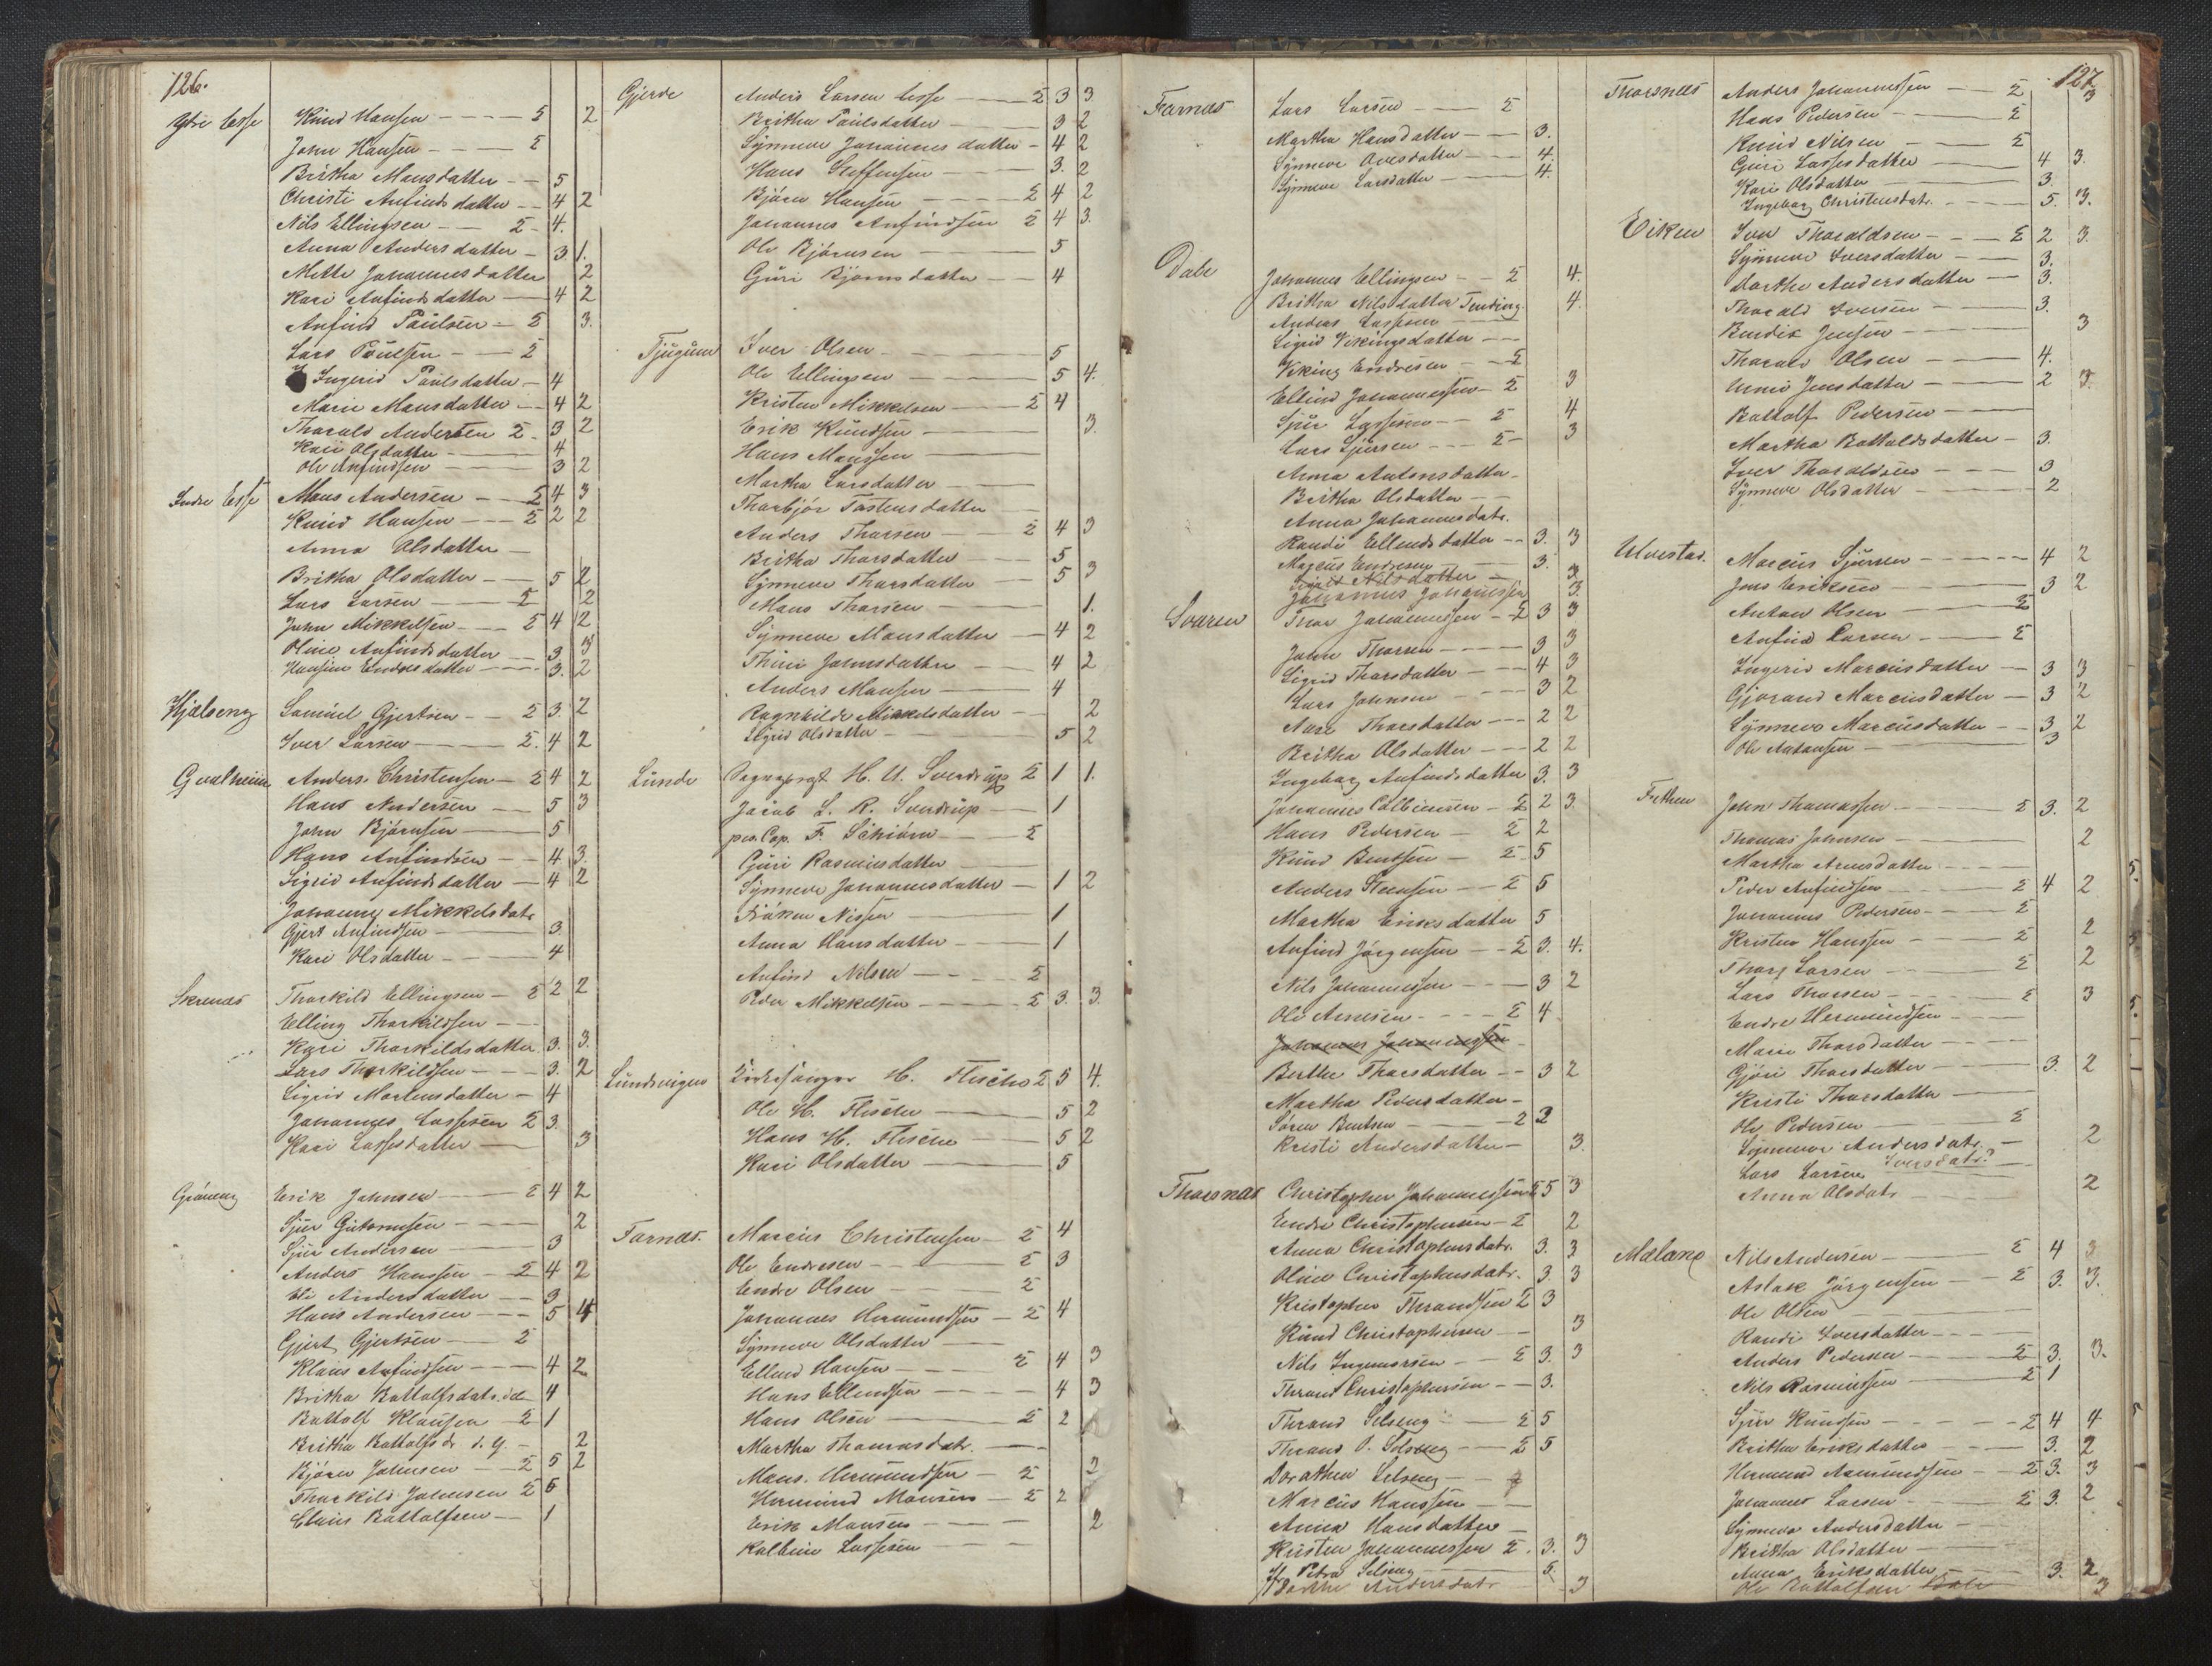 126.
Ydre Esse Knud Hansen - - - - Σ 2
John Hansen - - - Σ
Britha Mansdatter - - 5
Christi Anfinds datter - - 4 2
Nils Ellingsen - - Σ - 4.
Anna Anders datter - 3 1.
Mette Johannesdatter 2
Kari Anfindsdatter — 4 2
Anfind Paulsen - Σ 3.
Lars Poulsen - — Σ
Ingerid Paulsdatter - 4
Marie Mansdatter - - 4 2
Thorald Andersen Σ - 3 2
Kari Olsdatter - 4
Ole Anfindsen — 3 2
Indre Esse Mons Andersen — Σ 4 3
Knud Hansen - - - Σ 2 2
Anna Olsdatter —
Britha Olsdatter - — 5 2
Lars Larsen - — Σ 2
John Mikkelsen - - - Σ 4 2
Oline Anfindsdatter — 3 3
datter - - - - 3. 2
Hjalseng Samuel Gjertsen - - Σ 3. 2
Iver Larsen — Σ. 4 2
Gualheim Anders Christensen - Σ 4 2
Hans Andersen — 5 3
John Bjørnsen — 5
Hans Anfindsen - - 4 3.
Sigrid Anfindsdatter — 4 2
Johanne Mikkelsdatr
Gjert Anfindsen — 3
Kari Olsdatter - — 4
Skrenas Thorkild Ellingsen - Σ 2 2
Elling Thorkildsen - -
Kari Thorkildsdatter 3. 3.
Lars Thorkildsen - - - 3. 2
Sigrid Martensdatter - 4
Johannes Lassesen Σ 3
Kari Lassesdatter — 3
Grøneng Erik Johnsen — Σ 4 2
Sjur Guttormsen - - 2
Sjur Andersen — 3
Anders Hanssen - Σ 4 2
Eli Andersdatter — 3
Hans Andersen — 5 4
Gjert Gjertsen — Σ
Klaus Anfindsen - - - 4 2
Britha Battolfsdatr. 4
Battolf Klausen - Σ 1
Britha Battolfsdr. d. y. - 2
Bjørn Johnsen - - Σ 5 2
Thorkild Johnsen Σ 5
Claus Battolfsen - - 1
Gjerde Anders Larsen Esse — Σ 3 3
Britha Paulsdatter — 3 2
Synneve Johannes datter - 4 2
Hans Steffensen — 3. 2
Bjørn Hansen — Σ 4 2
Johannes Anfindsen Σ 4 3.
Ole Bjørnsen — 5
Guri Bjørnsdatter — 4
Tjugum Iver Olsen - — 5
Ole Ellingsen — 5 4.
Kristen Mikkelsen — Σ 4
Erik Knudsen — 3.
Hans Monssen —
Martha Larsdatter - —
Thorbjør Tostensdatter —
Anders Thorsen — Σ 4 3
Britha Thorsdatter — 5
Synneve Thorsdatter — 5 3
Mons Thorsen — 1.
Synneve Monsdatter — 4 2
Thuri Johnsdatter — 4 2
Anders Monsen — 4
Ragnhilde Mikkelsdatter — 2
Sigrid Olsdatter - — 5 2
Lunde Sogneprst H. U. Sverdrup Σ 1 1.
Jacob L. R. Sverdrup — 1
F. Schiørn — Σ
Guri Rasmusdatter —
Synneve Johannesdatter — 1 2
Haaken Nissen — 1
Anna Hansdatter — 1
Anfind Nilsen — Σ
Peder Mikkelsen — Σ 3. 3.
Lundeeigen Kirkesanger H. Σ 5 4.
Ole H. — 5 2
Hans H. — 5 2
Kari Olsdatter — 5
Farnæs. Marcus Christensen — Σ 4
Ole Endresen - — Σ 3
Endre Olsen — Σ
Johannes Hermundsen — Σ 4
Synneve Olsdatter —
Ellend Hansen - — Σ 4 3
Hans Ellendsen — 4 3
Hans Olsen — Σ 2
Martha Thomasdatr. —
Mons Hermundsen - Σ 3
Hermund Monsen — Σ 2
Erik Monsen — 2
Kolbein Lassesen —
127
Farnæs Lars Larsen - - - Σ
Martha Hansdatter - - 3.
Synneve datter — 4.
Synneve Larsdatter — 4.
Dale Johannes Ellingsen - - Σ 4.
Britha Nilsdatter 4.
Anders Lassesen —
Sigrid Vikingsdatter - -
Viking Endresen — Σ
Ellend Johannessen - Σ 3
Sjur Lassesen - - Σ 4
Lars Sjursen - - - Σ 3
Anna Antonsdatter -
Britha Olsdatter - -
Anna Johannesdatr.
Randi Ellendsdatter - - 3. 3
Marcus Endresen 3.
Nilsdatter — 3
Johannes Johannessen 3.
Svaren Thor Johannessen - Σ 3 3
John Thorsen - - - 3 3
Sigrid Thorsdatter - - 4 3
Lars Johnsen - - - 3 2
Thorsdatter - - - 2 2
Britha Olsdatter - - - 2 2
Ingeborg Anfindsdatter 3. 3
Johannes Σ 2 3.
Hans Pedersen — Σ 2
Knud Bentsen — Σ 5
Anders Steensen - - Σ 5
Martha Eriksdatter 5
Anfind Jørgensen - - Σ 3. 4.
Nils Johannessen - - - 3 2
Ole Arnesen - - - - Σ 4
Johannes Johannessen
Berthe Thorsdatter - - 3 2
Martha Pedersdatter -
Søren Bentsen — 2 2
Kristi Andersdatter — 3.
Thorsnæs Christopher Johannessen Σ 5 3
Endre Christophersen - Σ 2
Anna Christophersdatr. 3. 3
Oline Christophersdatr. 3. 3
Kristopher Thrandsen Σ 3
Knud Christophersen — 3
Nils Ingemarsen — Σ 3. 3
Thrand Christophersen — 3.
Thrand Selseng — Σ 5
Thrand O. Selseng — Σ 5
Dorathea Selseng - -
Marcus Hanssen - —
Anna Hansdatter —
Kristen Johannessen Σ . 3. 3
Petra Selseng — 5.
Andersdatr 3
Thorsnæs Anders Johannessen — Σ 3
Hans Pedersen — Σ
Knud Nilsen - — Σ
Guri Lassesdatter — 4 3.
Kari Olsdatter — 3.
Ingeborg Christensdatr. - - - - 5. 3.
Eiken Iver Thoraldsen - - — Σ 2 3.
Synneve Iversdatter - — 3.
Marthe Andersdatter — 3.
Thorald Iversen - — 3.
Bendix Jensen - — 3
Thorald Olsen — 4.
Unni Jensdatter - — 2 3.
Battolf Pedersen - —
Martha Battolfsdatter - 3.
Iver Thoraldsen - - - 3
Synneve Olsdatter — 2
Ulvestad. Marcus Sjursen - - - - - 4 2
Jens Eriksen — 3 2
Anton Olsen — Σ
Anfind Larsen - — Σ
Ingerid Marcusdatter — 3 3
Gjørand Marcusdatter — 3 2
Synneve Marcusdatter - - 3 2
Ole Antonsen - — 3
Fretheim John Thomassen - — Σ 3. 2
Thomas Johnsen — 2
Martha Arnesdatter —
Peder Anfindsen — Σ 4 2
Johannes Pedersen - — Σ
Kristen Hanssen — Σ 2
Thor Larsen — Σ 2
Lars Thorsen - — Σ 3
Endre Hermundsen - —
Marie Thorsdatter - - -
Gjøri Thorsdatter — 3. 2
Kristi Thorsdatter —
Ole Pedersen — Σ
Synneve Andersdatr. - 2
Lars Larsen Iversdatr? —
Anna Olsdatr 2
Mæland Nils Andersen — Σ 4 3
Aslak Jørgensen — Σ 3. 3.
Ole Olsen —
Randi Iversdatter - - -
Anders Pedersen — Σ 3. 3.
Nils Rasmussen — Σ 1
Sjur Knudsen - - - - - Σ 4 4
Britha Eriksdatter — 3. 2
Hermund Aamundsen — Σ 3. 3
Johannes Larsen - — Σ 3. 2
Synneve Andersdatter -
Britha Olsdatter -
Anna Eriksdatter — 3. 2
Ole Battolfsen 3